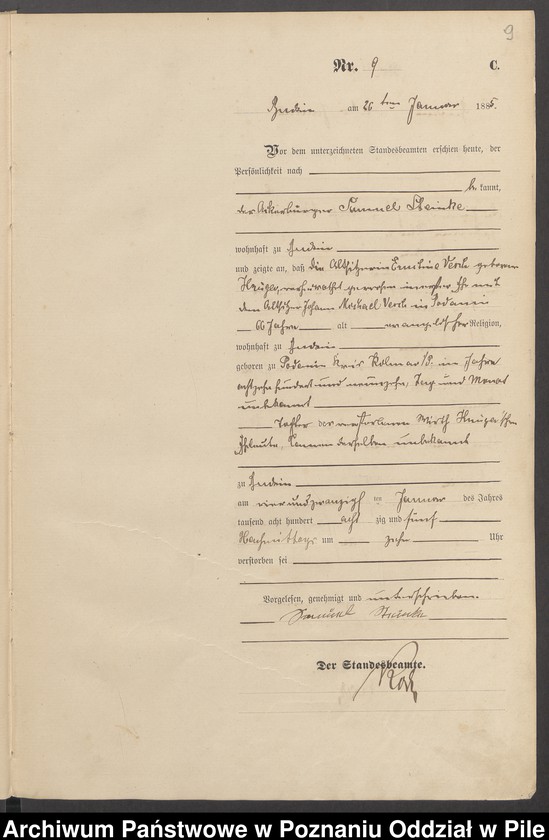 9
Nr. 9 C.
Budsin am 26 ten Januar 1885.
Vor dem unterzeichneten Standesbeamten erschien heute, der
Persönlichkeit nach
be kannt,
der Ackerbürger Samuel Steinke
wohnhaft zu Budsin
und zeigte an, daß die Altsitzerin Ernstine geborene
Krüger, verheirathet gewesen in erster Ehe mit
dem Altsitzer Johann Michael in Podanin
66 Jahre alt evangelischer Religion,
wohnhaft zu Budsin
geboren zu Podanin Kreis Kolmar i/P. im Jahre
achtzehn hundert und neunzehn, Tag und Monat
unbekannt
Tochter der verstorbenen Wirth Krüger'schen
Eheleute, Namen derselben unbekannt
zu Budsin
am vierundzwanzigsten ten Januar des Jahres
tausend acht hundert acht zig und fünf
Nachmittags um zehn Uhr
verstorben sei
Vorgelesen, genehmigt und unterschrieben.
Samuel Steinke
Der Standesbeamte.
Archiwum Państwowe w Poznaniu Oddział w Pile